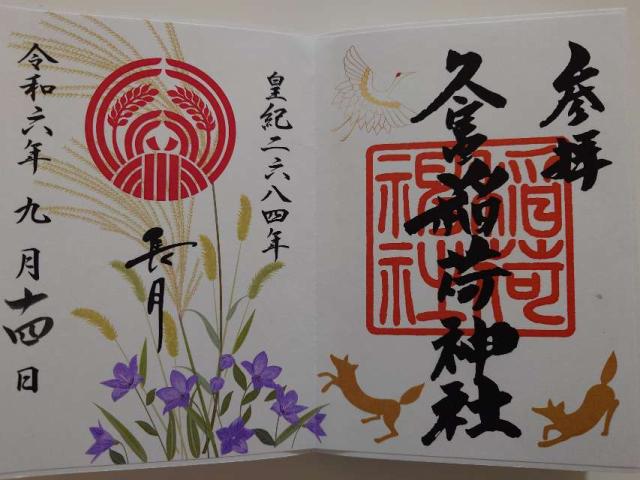 参拝
久富稲荷神社
稲荷
神社
皇紀二六八四年
長月
令和六年九月十四日